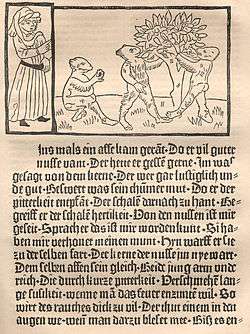 Ins mals ein affe kam gerāt · Do er vil guter
nusse vant · Der hette er gessē gerne · Im was
gesagt von dem kerne · Der wer gar lustiglich un
de gut · Beswert was sein thummer mut · Do er der
pitterkeit empfant · Der schalē darnach zu hant · Be
greiff er der schalē hertikeit · Von den nussen ist mir
geseit · Sprach er das ist mir worden kunt · Si ha
ben mir verhonet meinen munt · Hyn warff er sie
zu der selben fart · Der kerne der nusse im nye wart ·
Dem selben affen sein gleich · Beide jung arm und
reich · Die durch kurze pitterkeit · Verschmehēt
lange sussikeit · wenne mā das feuer enzuntē wil · So
wirt des rauches dick zu vil · Der thut einem in den
augen we · wen man darzu bleset met · Biß es en